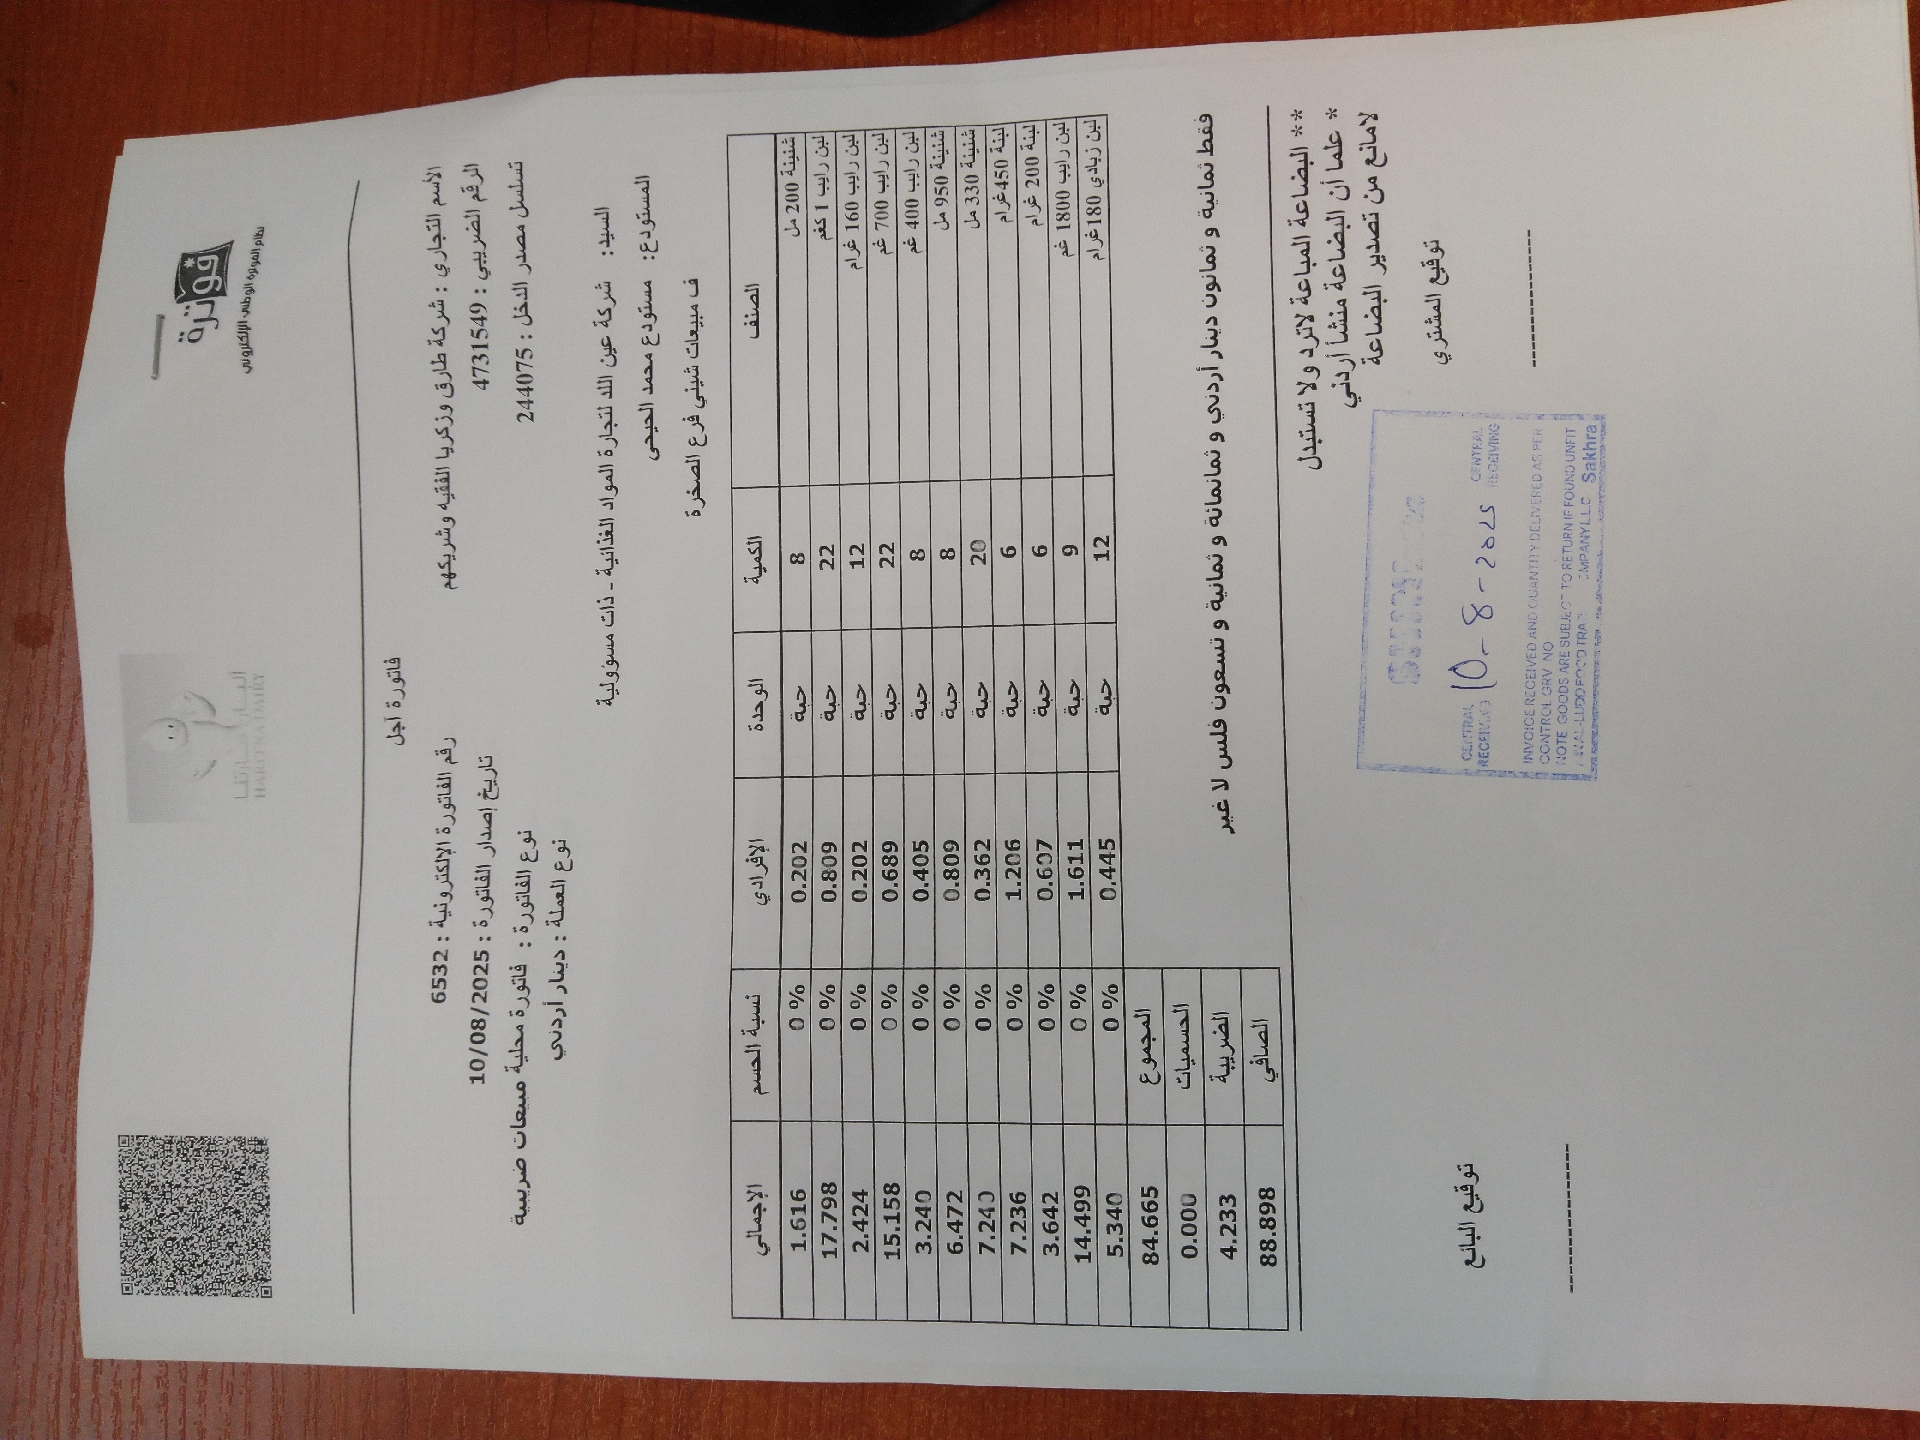 فوترة
نظام الفوترة الوطني الإلكتروني
HARITNA DAIRY
فاتورة آجل
الأسم التجاري : شركة طارق وزكريا الفقيه وشريكهم
رقم الفاتورة الإلكترونية : 6532
الرقم الضريبي : 4731549
تاريخ إصدار الفاتورة : 10/08/2025
تسلسل مصدر الدخل : 244075
نوع الفاتورة : فاتورة محلية مبيعات ضريبية
نوع العملة : دينار أردني
السيد: شركة عين اللد لتجارة المواد الغذائية - ذات مسؤولية
المستودع: مستودع محمد الحيحي
ف مبيعات شيني فرع الصخرة
الصنف الكمية الوحدة الإفرادي نسبة الحسم الإجمالي
شنينة 200 مل 8 حبة 0.202 0 % 1.616
لبن رايب 1 كغم 22 حبة 0.809 0 % 17.798
لبن رايب 160 غرام 12 حبة 0.202 0 % 2.424
لبن رايب 700 غم 22 حبة 0.689 0 % 15.158
لبن رايب 400 غم 8 حبة 0.405 0 % 3.240
شنينة 950 مل 8 حبة 0.809 0 % 6.472
شنينة 330 مل 20 حبة 0.362 0 % 7.240
لبنة 450غرام 6 حبة 1.206 0 % 7.236
لبنة 200 غرام 6 حبة 0.607 0 % 3.642
لبن رايب 1800 غم 9 حبة 1.611 0 % 14.499
لبن زبادي 180غرام 12 حبة 0.445 0 % 5.340
المجموع 84.665
الحسميات 0.000
الضريبة 4.233
الصافي 88.898
فقط ثمانية و ثمانون دينار أردني و ثمانمائة و ثمانية و تسعون فلس لا غير
** البضاعة المباعة لاترد ولا تستبدل
* علما أن البضاعة منشأ أردني
لامانع من تصدير البضاعة
توقيع المشتري
توقيع البائع
CENTRAL RECEIVING
10-8-2025
CENTRAL RECEIVING
INVOICE RECEIVED AND QUANTITY DELIVERED AS PER
CONTROL GRV NO
NOTE GOODS ARE SUBJECT TO RETURN IF FOUND UNFIT
Sakhra